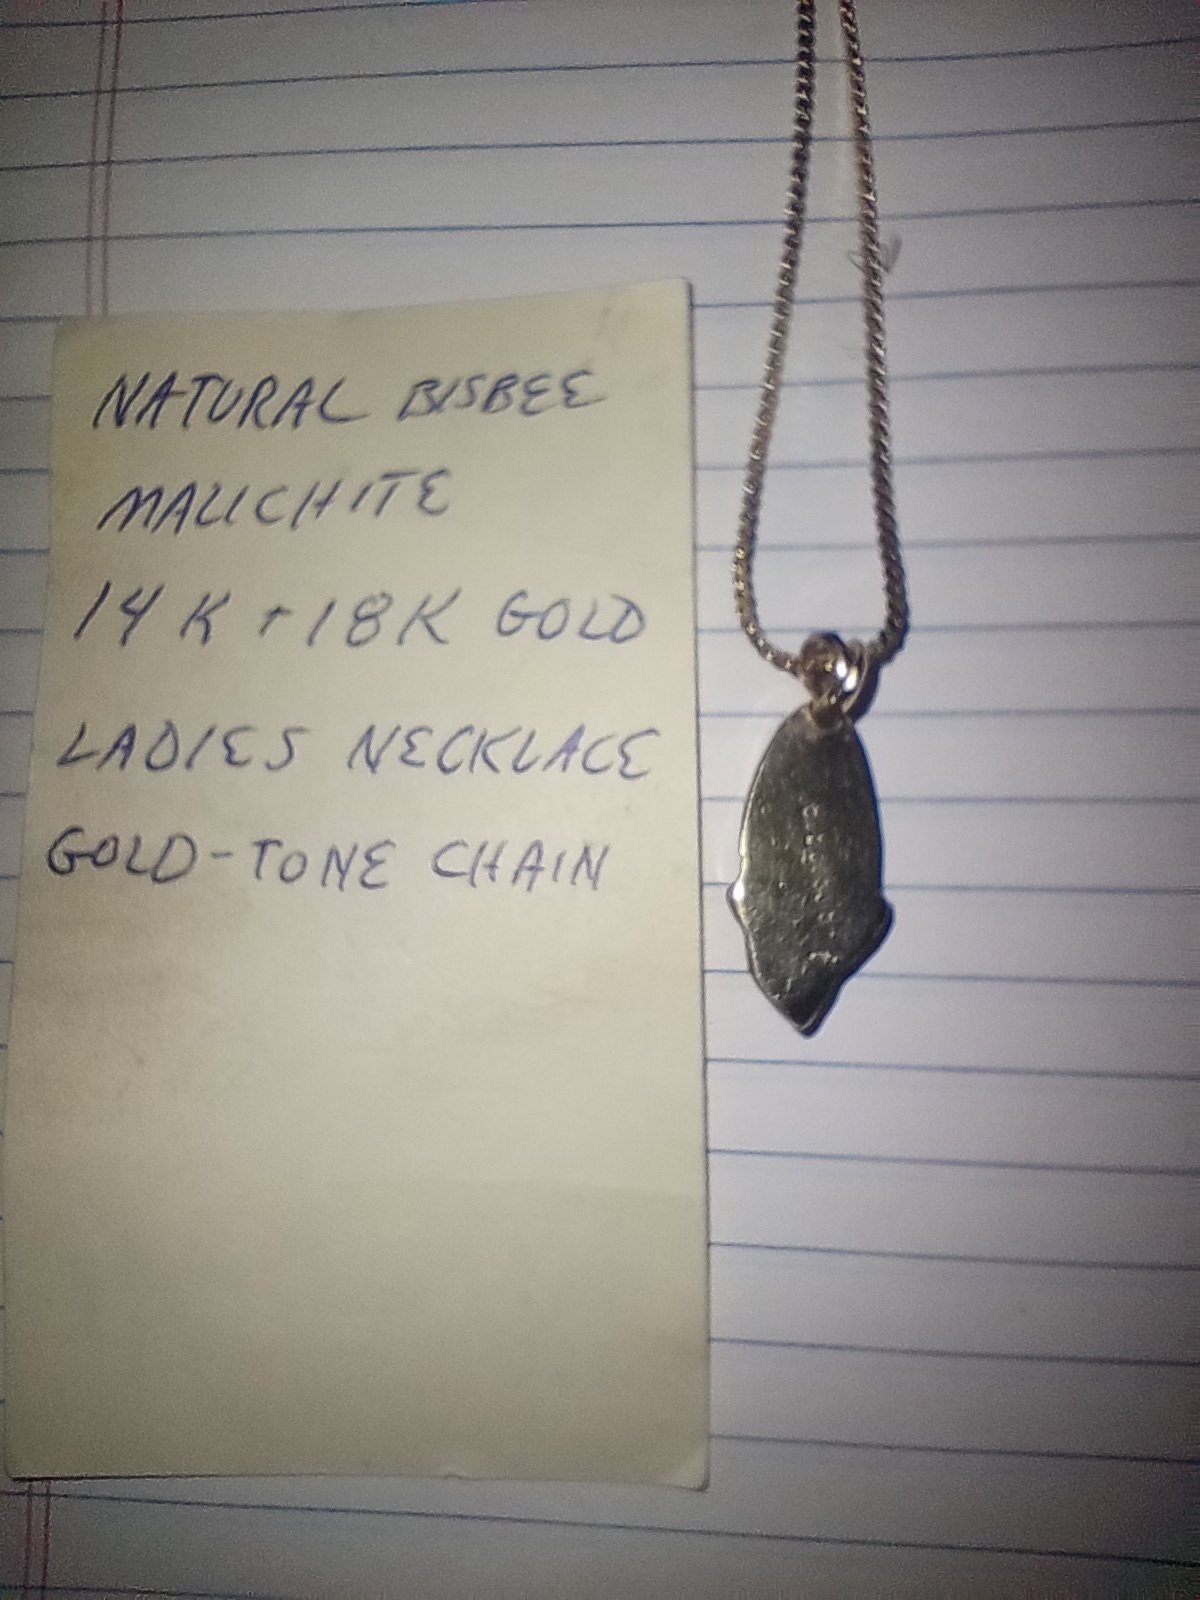 NATURAL BISBEE
MALICHITE
14K + 18K GOLD
LADIES NECKLACE
GOLD-TONE CHAIN